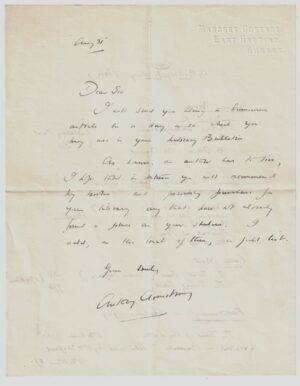 HARGEST COTTAGE
EAST HARTING
SUSSEX
Aug 31
Dear Sir
I will send you along a humorous
article in a day or so which you
may use in your Library Bulletin
As, however, an author has to live,
I hope that in return you will recommend
my books and possibly purchase for
your library any that have not already
found a place on your shelves. I
add, on the back of this, a full list.
Yours truly
Antony Armstrong